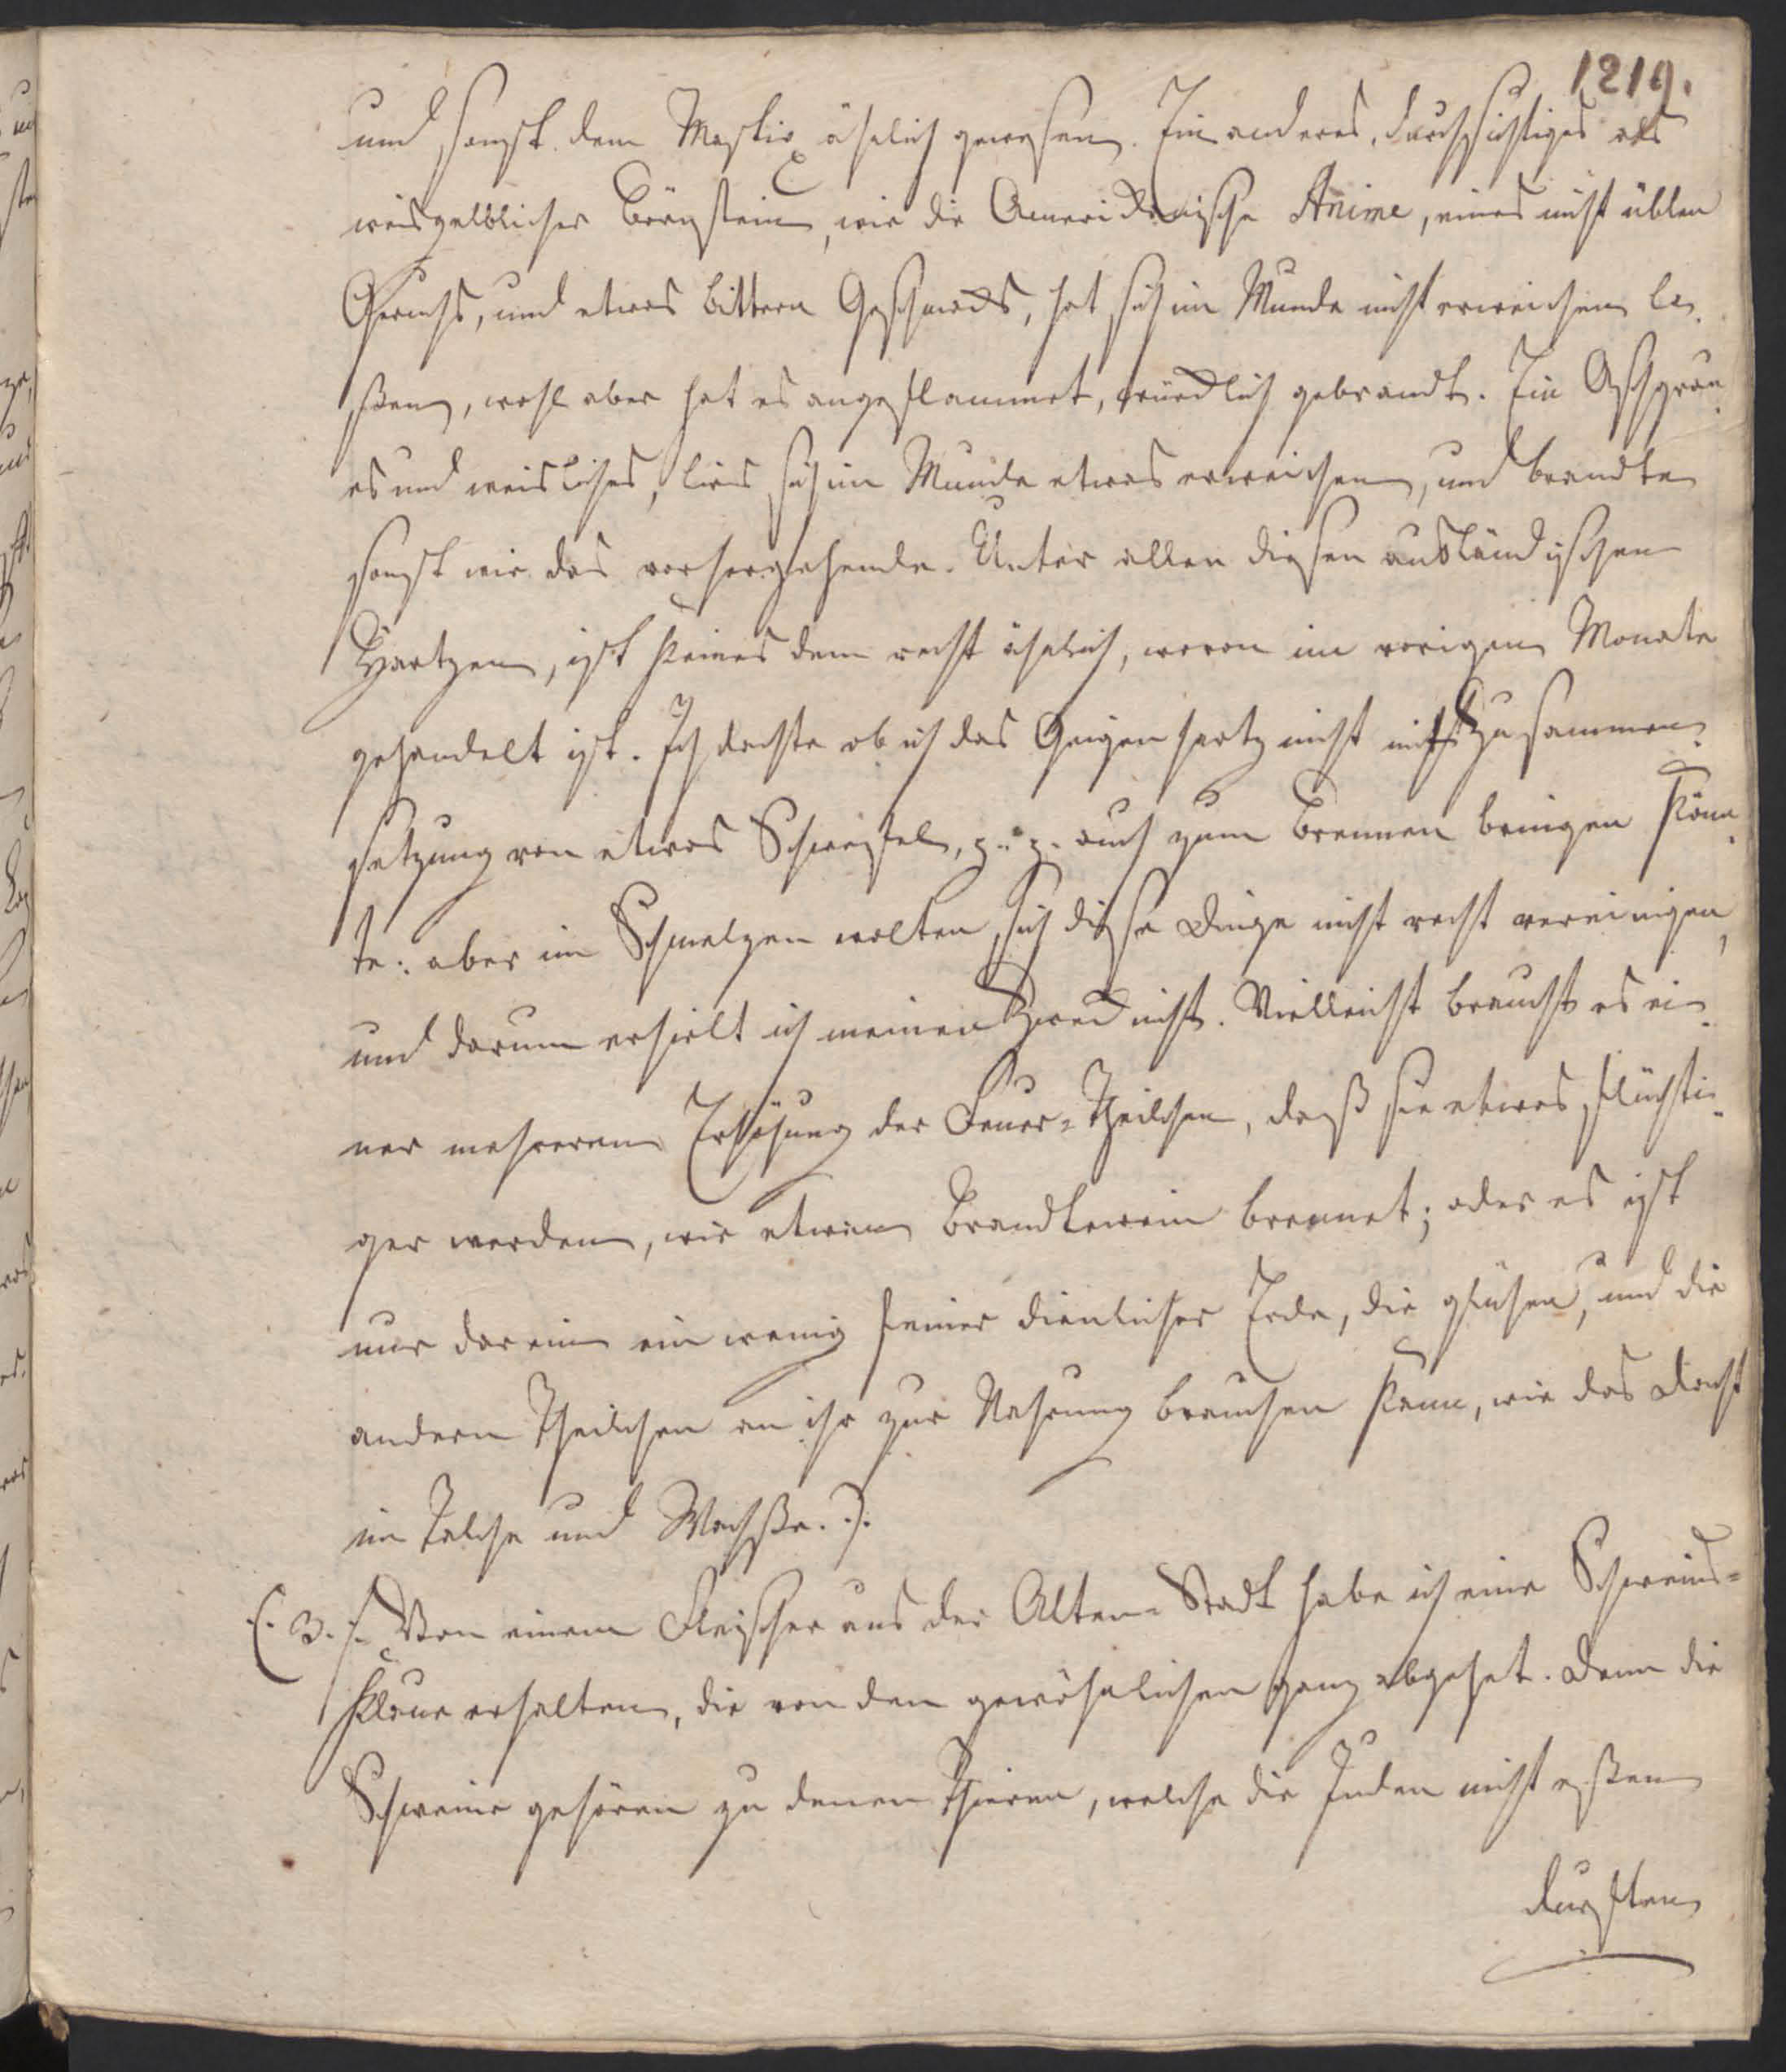 1219.
und sonst dem Mastix ähnlich gewesen. Ein anderes, durchsichtiges als
weisgelblicher Börnstein, wie die Americanische Anime, eines nicht üblen
Geruchs, und etwas bittern Geschmacks, hat sich im Munde nicht erweichen la-
ßen, wohl aber hat es angeflammet, würcklich gebrandt. Ein Aschgrau-
es und weisliches, lies sich im Munde etwas erweichen, und brandte
sonst wie das vorhergehende. Unter allen diesen ausländischen
Hartzen, ist keines dem recht ähnlich, wovon im vorigen Monate
gehandelt ist. Ich dachte ob ich das Geigenhartz nicht mit Zusammen-
setzung von etwas Schwefel, z. z. auch zum Brennen bringen kön-
te: aber im Schmelzen wolten sich diese Dinge nicht recht vereinigen,
und darum erhielt ich meinen Zweck nicht. Vielleicht braucht es ei-
ner mehreren Erhösung der Feuer-Theilchen, daß sie etwas flüchti-
ger werden, wie etwan Brandtewein brennet; oder es ist
nur darein ein wenig feiner dienlicher Erde, die glühen, und die
andern Theilchen an ihr zur Nahrung brauchen kann, wie das Dacht
im Talche und Wachße. :).
(: 3. :) Von einem Fleischer aus der Alten-Stadt habe ich eine Schweins-
klaue erhalten, die von den gewöhnlichen ganz abgehet. Denn die
Schweine gehören zu denen Thieren, welche die Juden nicht eßen
durften